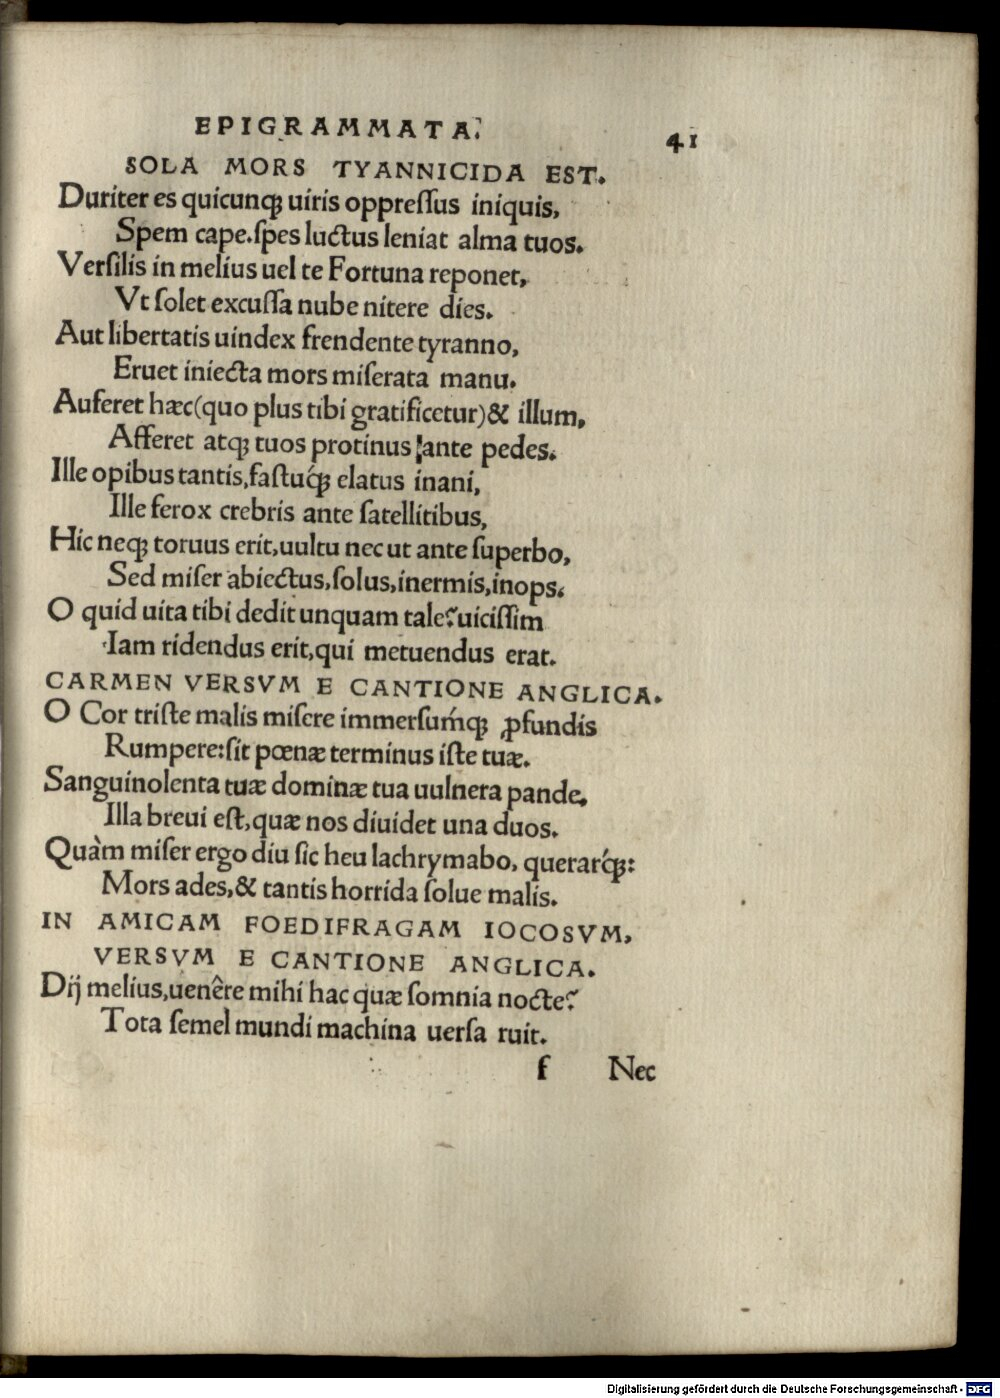 EPIGRAMMATA.
41
SOLA MORS TYANNICIDA EST.
Duriter es quicunqꝫ uiris oppreſſus iniquis,
Spem cape.ſpes luctus leniat alma tuos.
Verſilis in melius uel te Fortuna reponet,
Vt ſolet excuſſa nube nitere dies.
Aut libertatis uindex frendente tyranno,
Eruet iniecta mors miſerata manu.
Auferet hæc(quo plus tibi gratificetur)& illum,
Afferet atqꝫ tuos protinus ante pedes.
Ille opibus tantis,faſtuq́ꝫ elatus inani,
Ille ferox crebris ante ſatellitibus,
Hic neqꝫ toruus erit,uultu nec ut ante ſuperbo,
Sed miſer abiectus,ſolus,inermis,inops.
O quid uita tibi dedit unquam tale?uiciſſim
Iam ridendus erit,qui metuendus erat.
CARMEN VERSVM E CANTIONE ANGLICA.
O Cor triſte malis miſere immerſumq́ꝫ ꝓfundis
Rumpere:ſit pœnæ terminus iſte tuæ.
Sanguinolenta tuæ dominæ tua uulnera pande,
Illa breui eſt,quæ nos diuidet una duos.
Quàm miſer ergo diu ſic heu lachrymabo, querarq́ꝫ:
Mors ades,& tantis horrida ſolue malis.
IN AMICAM FOEDIFRAGAM IOCOSVM,
VERSVM E CANTIONE ANGLICA.
Dij melius,uenêre mihi hac quæ ſomnia nocte?
Tota ſemel mundi machina uerſa ruit.
f Nec
Digitalisierung gefördert durch die Deutsche Forschungsgemeinschaft - DFG